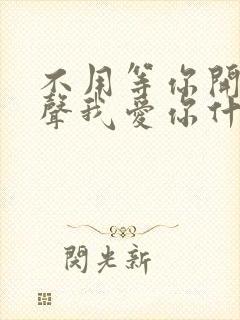 不用等你開
聲我愛你什
閃光新